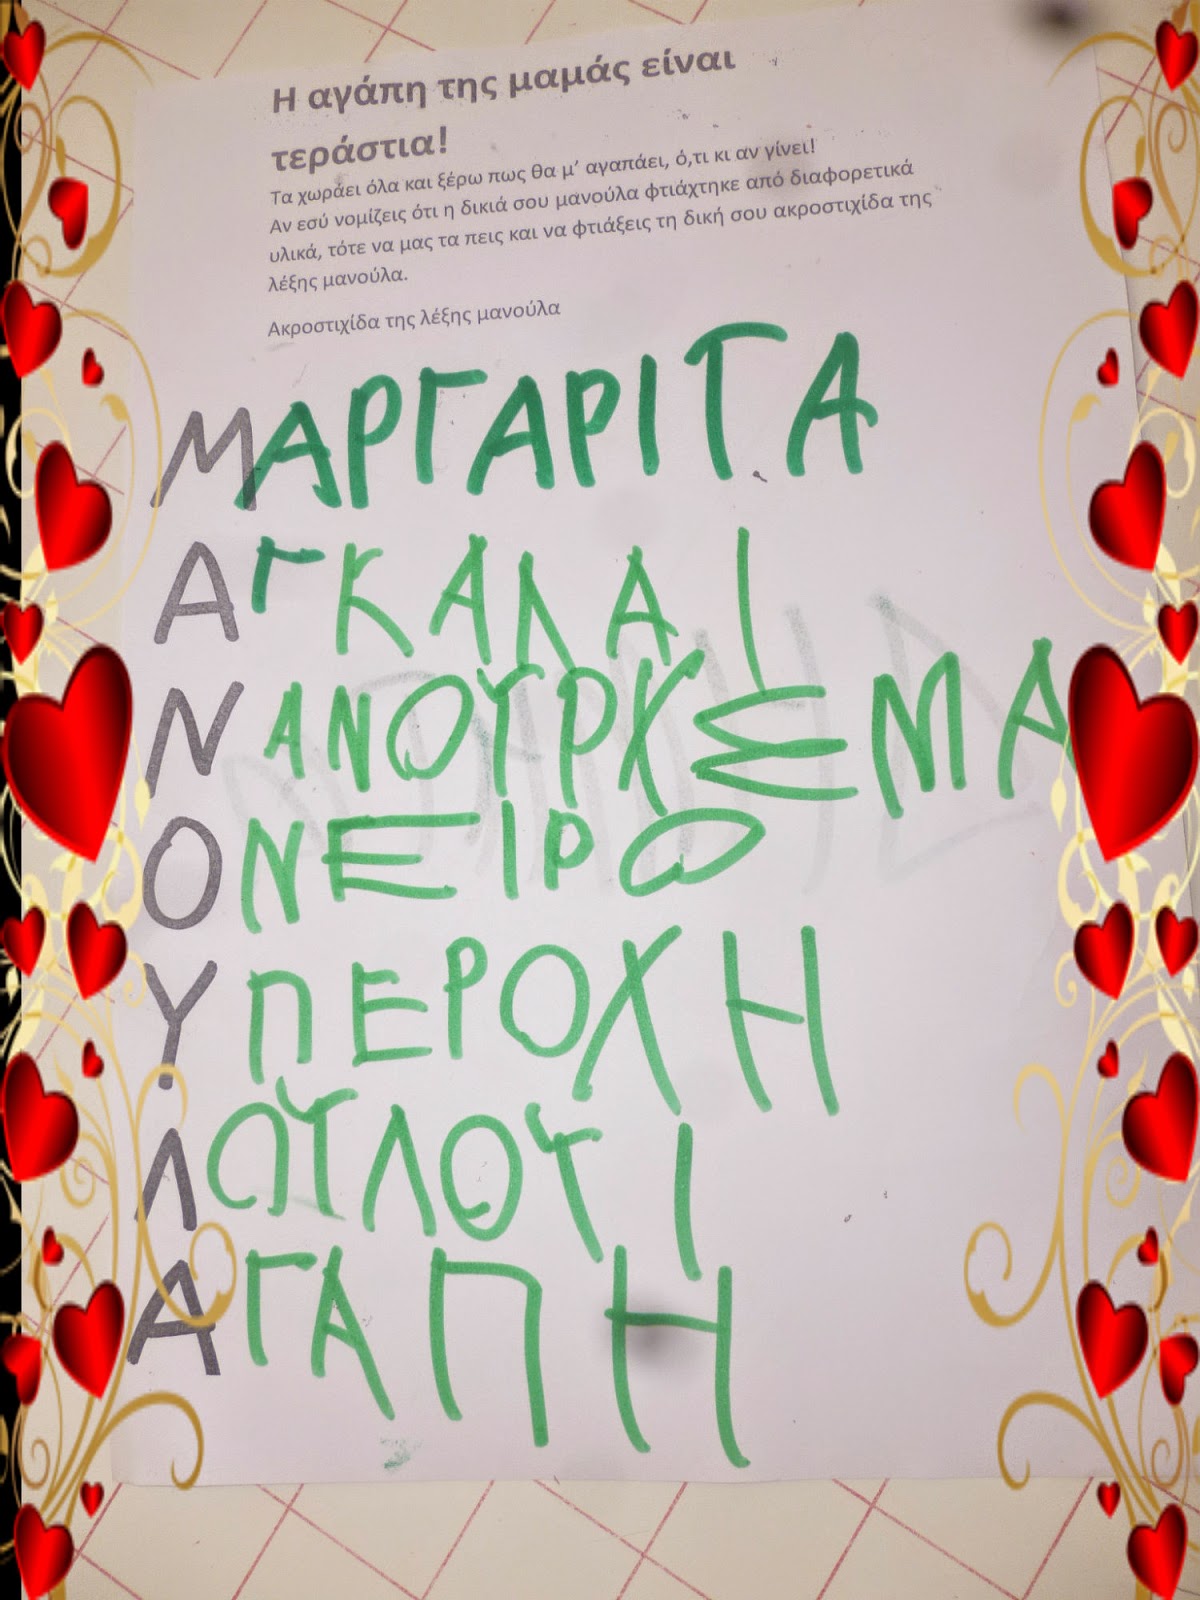 Η αγάπη της μαμάς είναι
τεράστια!
Τα χωράει όλα και ξέρω πως θα μ’ αγαπάει, ό,τι κι αν γίνει!
Αν εσύ νομίζεις ότι η δικιά σου μανούλα φτιάχτηκε από διαφορετικά
υλικά, τότε να μας τα πεις και να φτιάξεις τη δική σου ακροστιχίδα της
λέξης μανούλα.
Ακροστιχίδα της λέξης μανούλα
ΜΑΡΓΑΡΙΤΑ
ΑΓΚΑΛΑΙ
ΝΑΝΟΥΡΧΣΜΑ
ΟΝΕΙΡΟ
ΥΠΕΡΟΧΗ
ΛΟΥΛΟΥΙ
ΑΓΑΠΗ